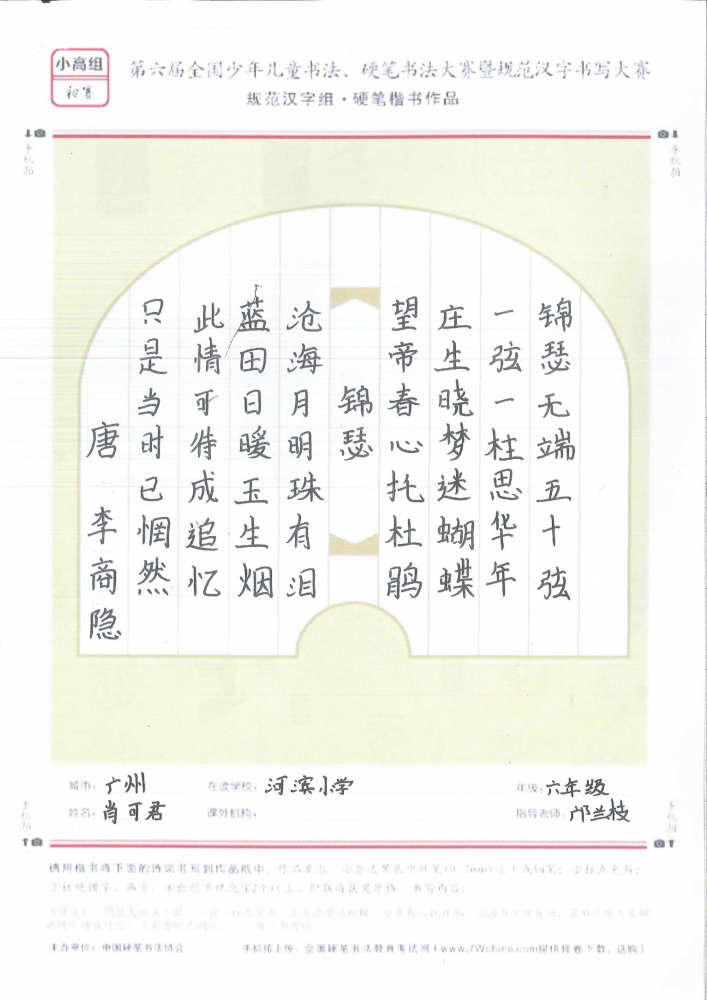 小高组
初赛
第六届全国少年儿童书法、硬笔书法大赛暨规范汉字书写大赛
规范汉字组·硬笔楷书作品
手机拍
手机拍
锦瑟无端五十弦
一弦一柱思华年
庄生晓梦迷蝴蝶
望帝春心托杜鹃
锦瑟
沧海月明珠有泪
蓝田日暖玉生烟
此情可待成追忆
只是当时已惘然
唐 李商隐
城市：广州 在读学校：河滨小学 年级：六年级
姓名：肖可君 课外机构： 指导老师：邝兰枝
手机拍
手机拍
请用楷书将下面的诗词书写到作品纸中，作品要求：
主办单位：中国硬笔书法协会 手机拍上传：全国硬笔书法教育考试网（www.7Wchina.com提供样卷下载、选购）